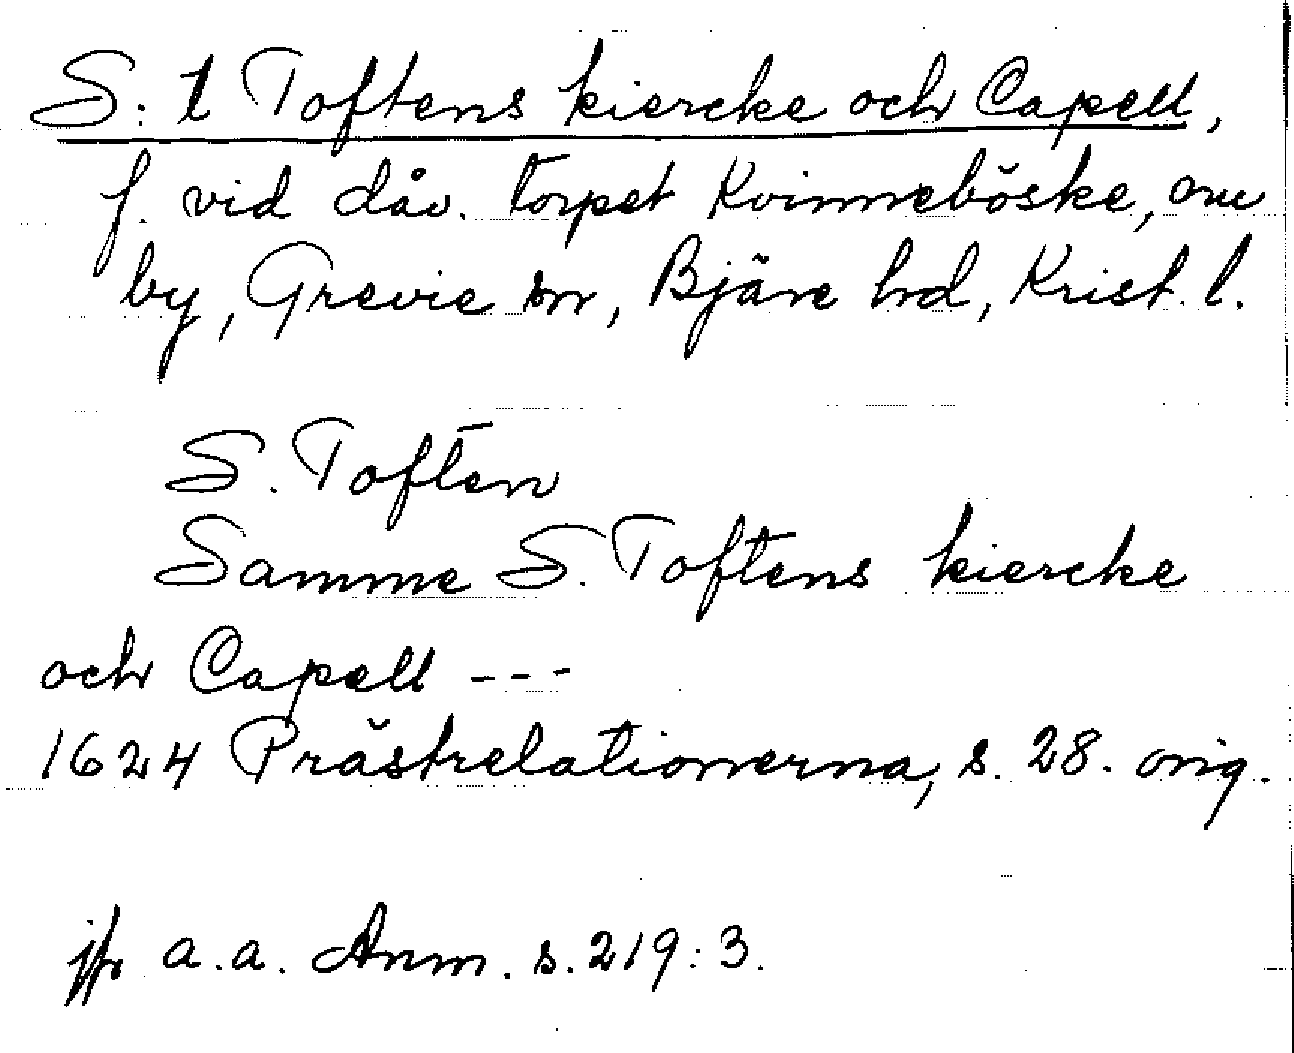 S: t Toftens kiercke och Capell,
f. vid dåv. torpet Kvinneböske,
by, Grevie sn, Bjäre hd, Krist. l.
S. Toften
Samme S. Toftens kiercke
och Capell ---
1624 Prästrelationerna, s. 28. orig.
jfr a.a. Anm. s. 219:3.